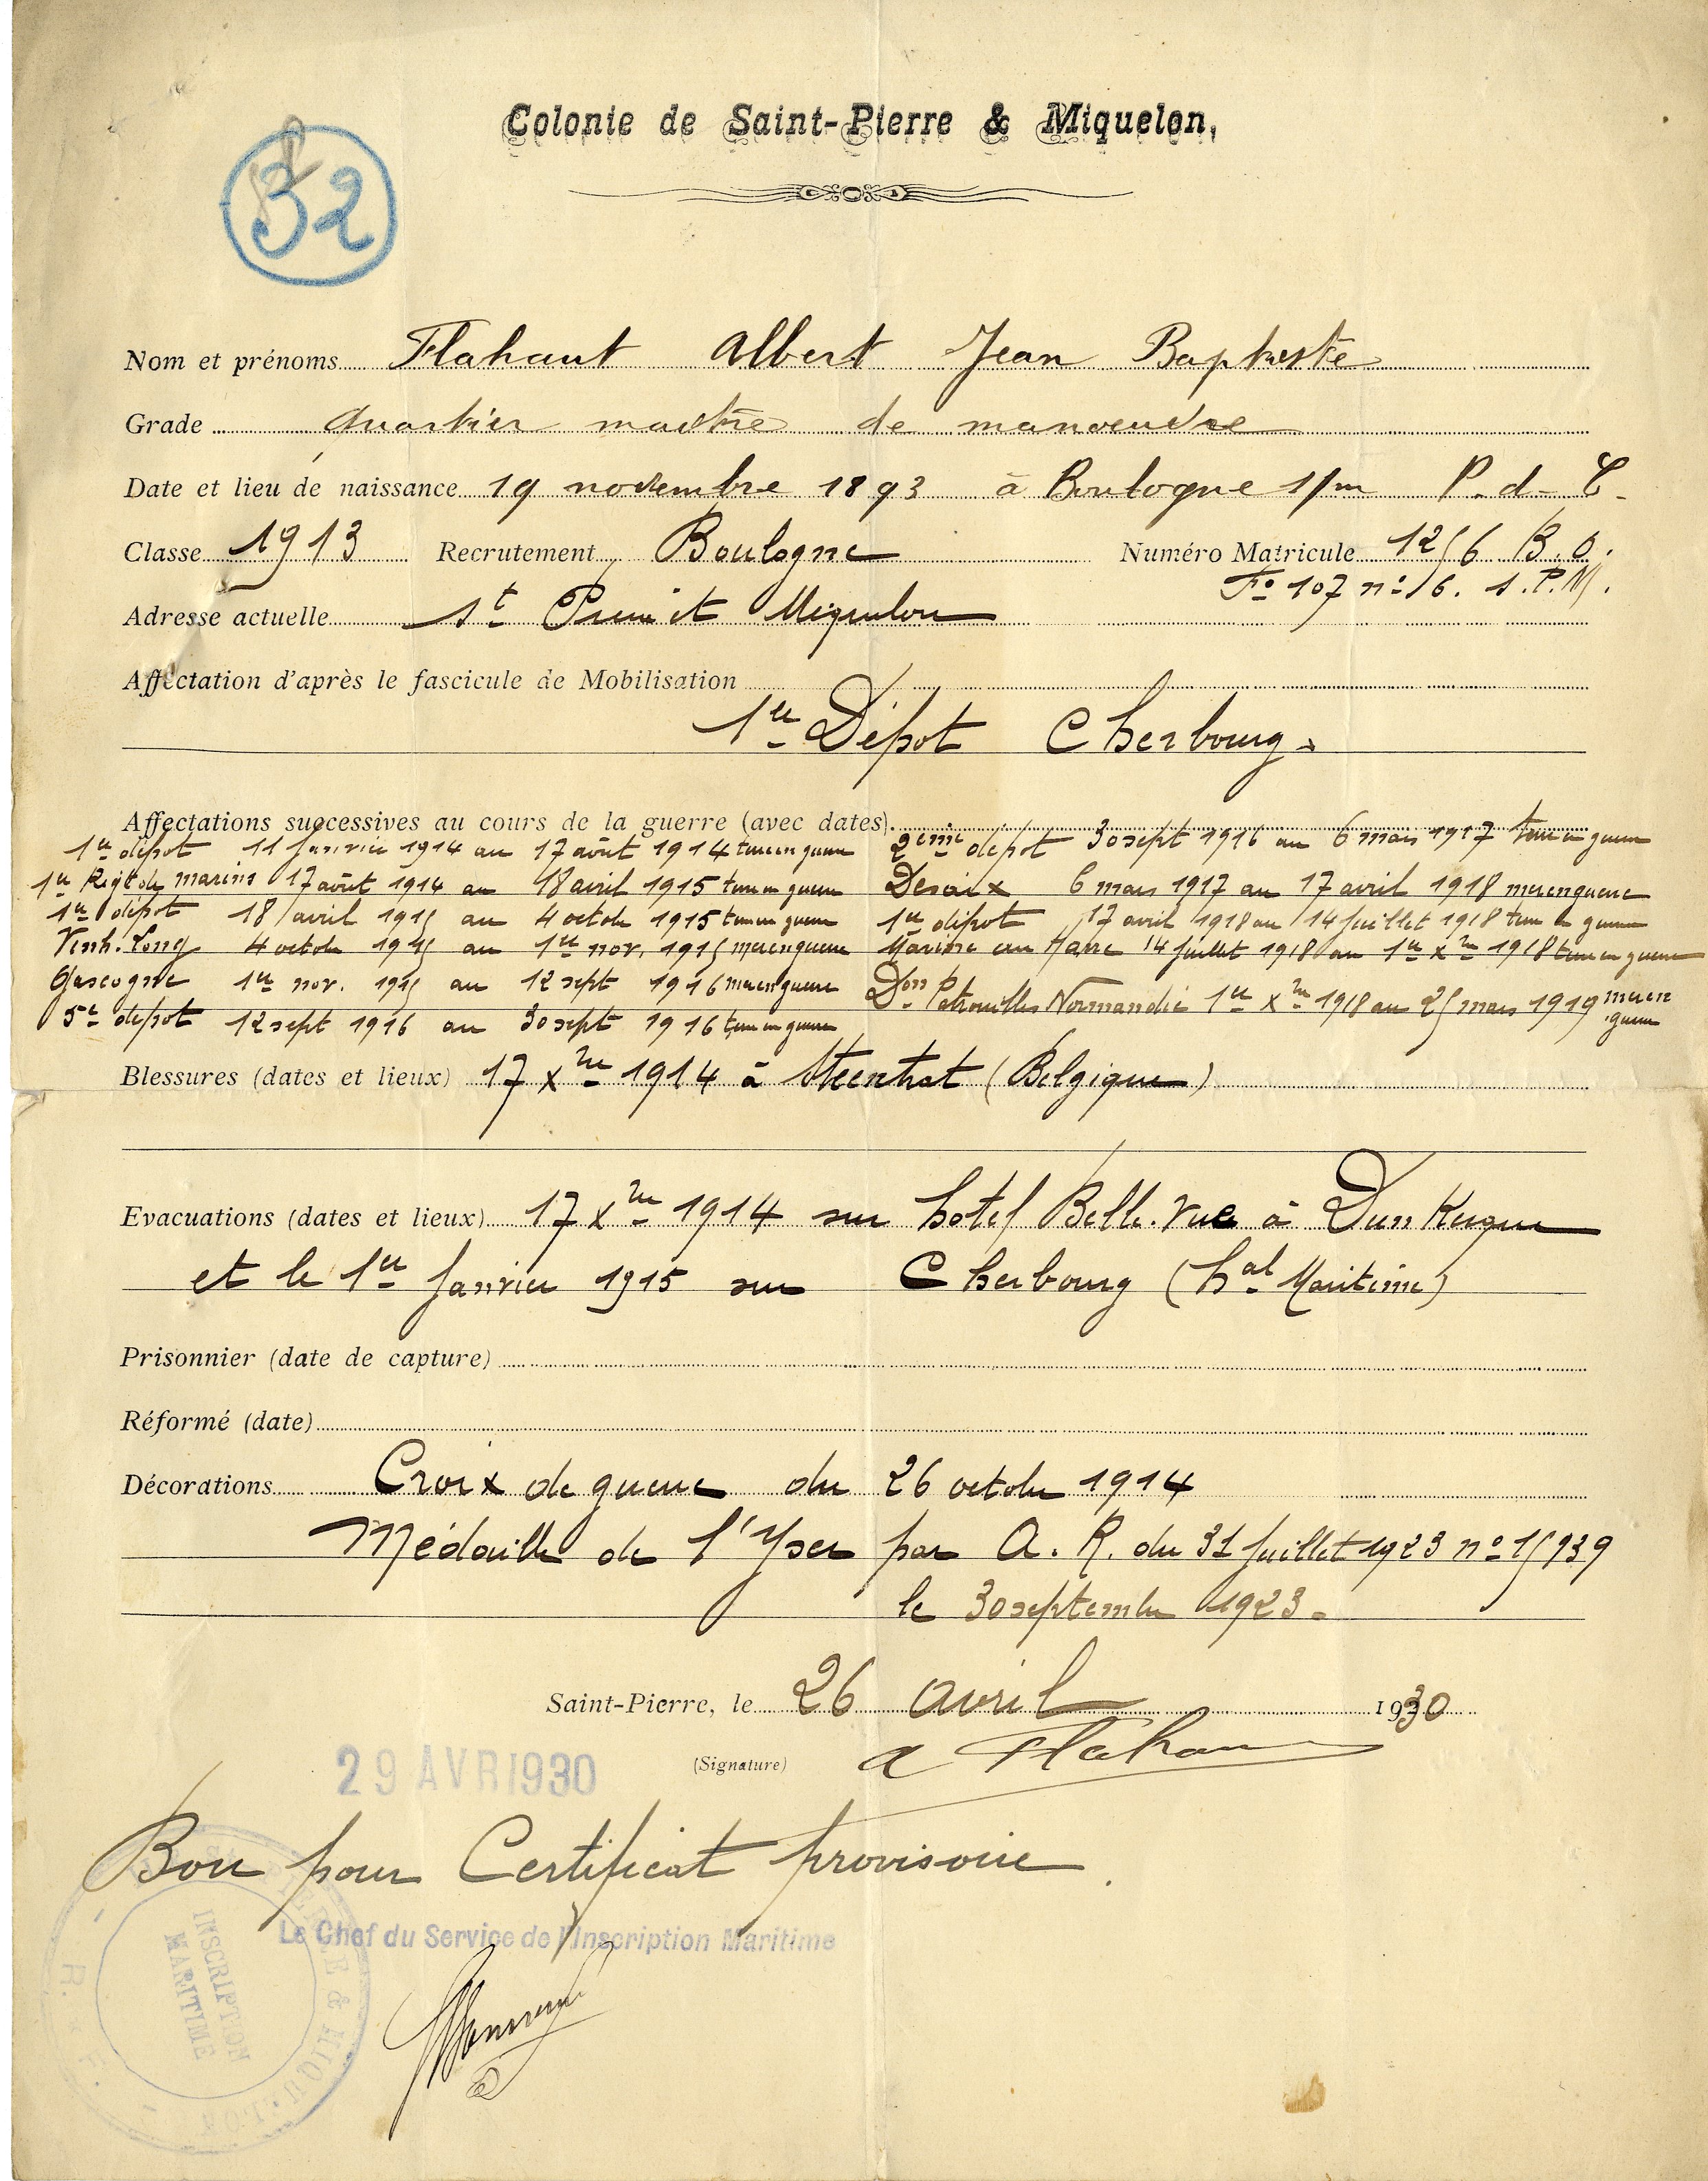 Colonie de Saint-Pierre & Miquelon,
32
Nom et prénoms Flahaut Albert Jean Baptiste
Grade quartier maître de manoeuvre
Date et lieu de naissance 19 novembre 1893 à Boulogne s/m P.d-C-
Classe 1913 Recrutement Boulogne Numéro Matricule 1256 B.O.
Fo 107 no 16. S.P.M.
Adresse actuelle St Pierre et Miquelon
Affectation d'après le fascicule de Mobilisation
1er Dépot Cherbourg.
Affectations successives au cours de la guerre (avec dates)
1er dépot 11 janvier 1914 au 17 août 1914 terre en guerre
1er Regt de marins 17 août 1914 au 18 avril 1915 terre en guerre
1er dépot 18 avril 1915 au 4 octobre 1915 terre en guerre
Vinh-Long 4 octobre 1915 au 1er nov. 1915 mer en guerre
Gascogne 1er nov. 1915 au 12 sept 1916 mer en guerre
5e dépot 12 sept 1916 au 30 sept 1916 terre en guerre
2eme dépot 30 sept 1916 au 6 mars 1917 terre en guerre
Desaix 6 mars 1917 au 17 avril 1918 mer en guerre
1er dépot 17 avril 1918 au 14 juillet 1918 terre en guerre
Marine au Havre 14 juillet 1918 au 1er Xbre 1918 terre en guerre
Don Patrouilles Normandie 1er Xbre 1918 au 25 mars 1919 mer en guerre
Blessures (dates et lieux) 17 Xbre 1914 à Steentrat (Belgique)
Evacuations (dates et lieux) 17 Xbre 1914 sur hotel Belle-Vue à Dunkerque
et le 1er janvier 1915 sur Cherbourg (hal Maritime)
Prisonnier (date de capture)
Réformé (date)
Décorations Croix de guerre du 26 octobre 1914
Médaille de l'Yser par A.R. du 31 juillet 1923 no 15939
le 30 septembre 1923.
Saint-Pierre, le 26 avril 1930
(Signature) A Flahaut
29 AVR 1930
Bon pour Certificat provisoire.
Le Chef du Service de l'Inscription Maritime
INSCRIPTION
MARITIME